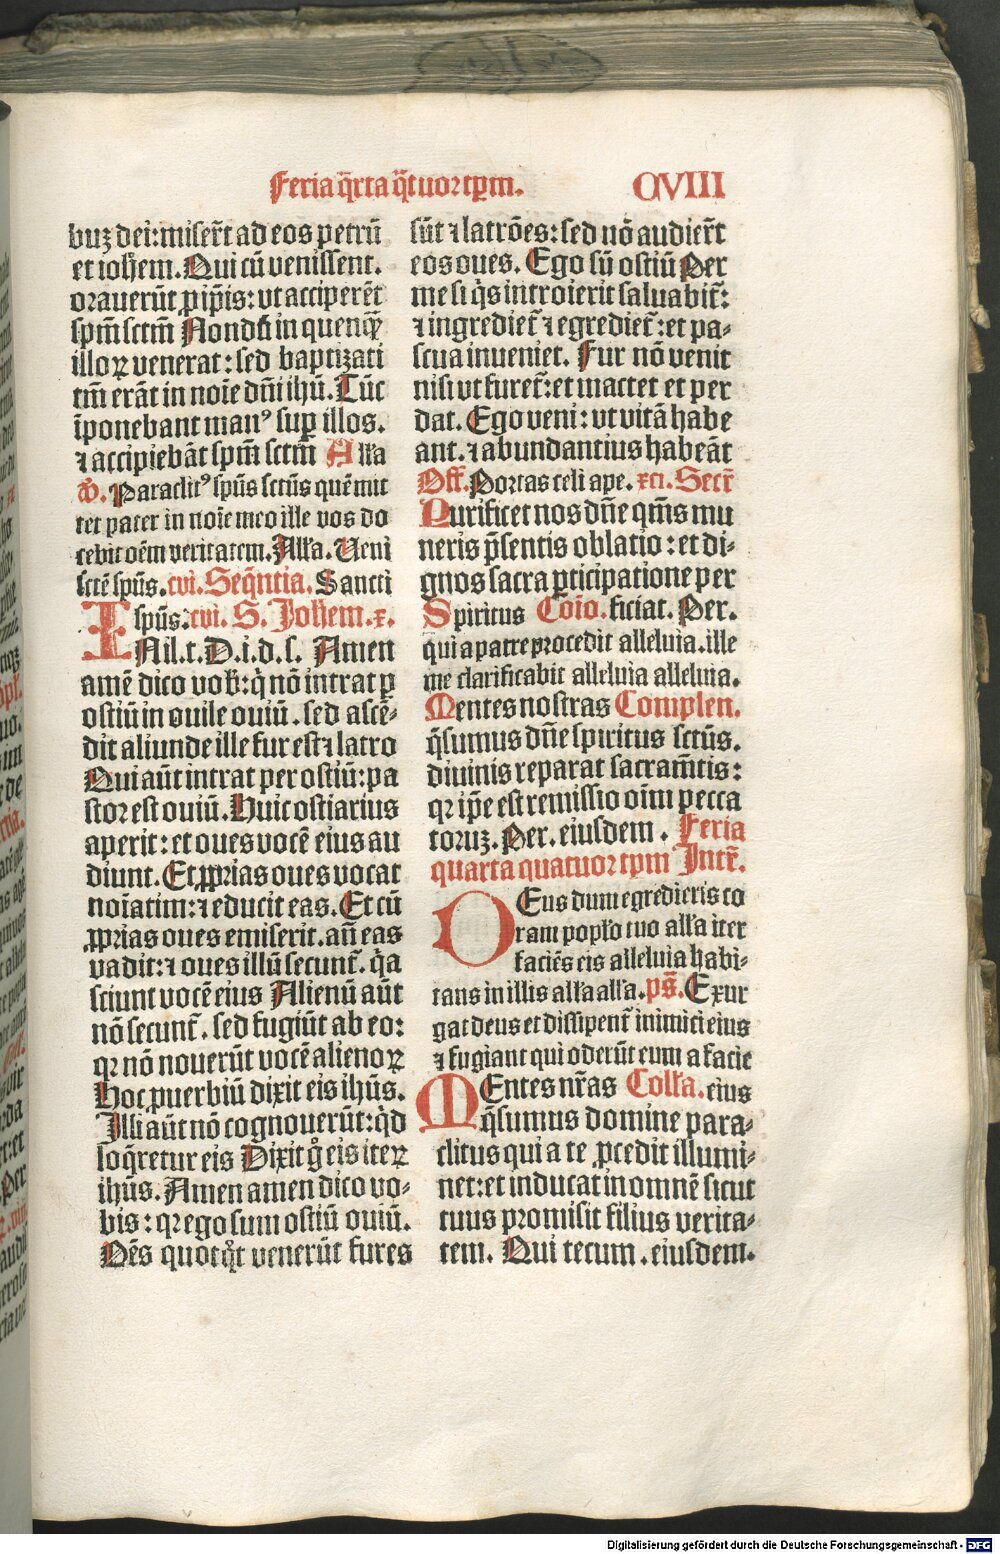 Feria q̄rta q̄tuor tꝑm. CVIII
buꝫ dei: miser̄t ad eos petrū
et ioh̄em. Qui cū venissent.
orauerūt ꝓ ip̄is: vt acciperēt
spm̄ sctm̄ Nondū in quenqꝫ
illoꝝ venerat: sed baptizati
tm̄ erāt in noīe dn̄i ihū. Tūc
īponebant manꝰ suꝑ illos.
⁊ accipiebāt spm̄ sctm̄ Alla
v̄. Paraclitꝰ spūs sctūs quē mit
tet pater in noīe meo ille vos do
cebit oēm veritatem. Alla. Veni
sctē spūs. cvi. Seq̄ntia. Sancti
spūs. cvi. S. Joh̄em. x.
IN il. t. D. i. d. s. Amen
amē dico vob̄: q̇ nō intrat ꝑ
ostiū in ouile ouiū. sed ascē-
dit aliunde ille fur est ⁊ latro
Qui aūt intrat per ostiū: pa
stor est ouiū. Huic ostiarius
aperit: et oues vocē eius au
diunt. Et ꝓprias oues vocat
noīatim: ⁊ educit eas. Et cū
ꝓprias oues emiserit. an̄ eas
vadit: ⁊ oues illū secunt̄. q̄a
sciunt vocē eius Alienū aūt
nō secunt̄. sed fugiūt ab eo:
qꝛ nō nouerūt vocē alienoꝝ
Hoc ꝓuerbiū dixit eis ihūs.
Illi aūt nō cognouerūt: q̇d
loq̄retur eis Dixit g̊ eis iteꝝ
ihūs. Amen amen dico vo-
bis: qꝛ ego sum ostiū ouiū.
Oēs quotq̇t venerūt fures
sūt ⁊ latrōes: sed nō audier̄t
eos oues. Ego sū ostiū Per
me si q̇s introierit saluabit̄:
⁊ ingrediet̄ ⁊ egrediet̄: et pa-
scua inueniet. Fur nō venit
nisi vt furet̄: et mactet et per
dat. Ego veni: vt vitā habe
ant. ⁊ abundantius habeāt
Off. Portas celi ape. xci. Secr̄
Purificet nos dn̄e qm̄s mu
neris p̄sentis oblatio: et di-
gnos sacra ꝑticipatione per
Spiritus Coīo. ficiat. Per.
qui a patre procedit alleluia. ille
me clarificabit alleluia alleluia.
Mentes nostras Complen.
q̄sumus dn̄e spiritus sctūs.
diuinis reparat sacram̄tis:
qꝛ ip̄e est remissio oīm pecca
toruꝫ. Per. eiusdem. Feria
quarta quatuor tꝑm Intr̄.
DEus dum egredieris co
ram popl̄o tuo alla iter
faciēs eis alleluia habi-
tans in illis alla alla. ps̄. Exur
gat deus et dissipent̄ inimici eius
⁊ fugiant qui oderūt eum a facie
MEntes nr̄as Coll̄a. eius
q̄sumus domine para-
clitus qui a te ꝓcedit illumi-
net: et inducat in omnē sicut
tuus promisit filius verita-
tem. Qui tecum. eiusdem.
Digitalisierung gefördert durch die Deutsche Forschungsgemeinschaft - DFG